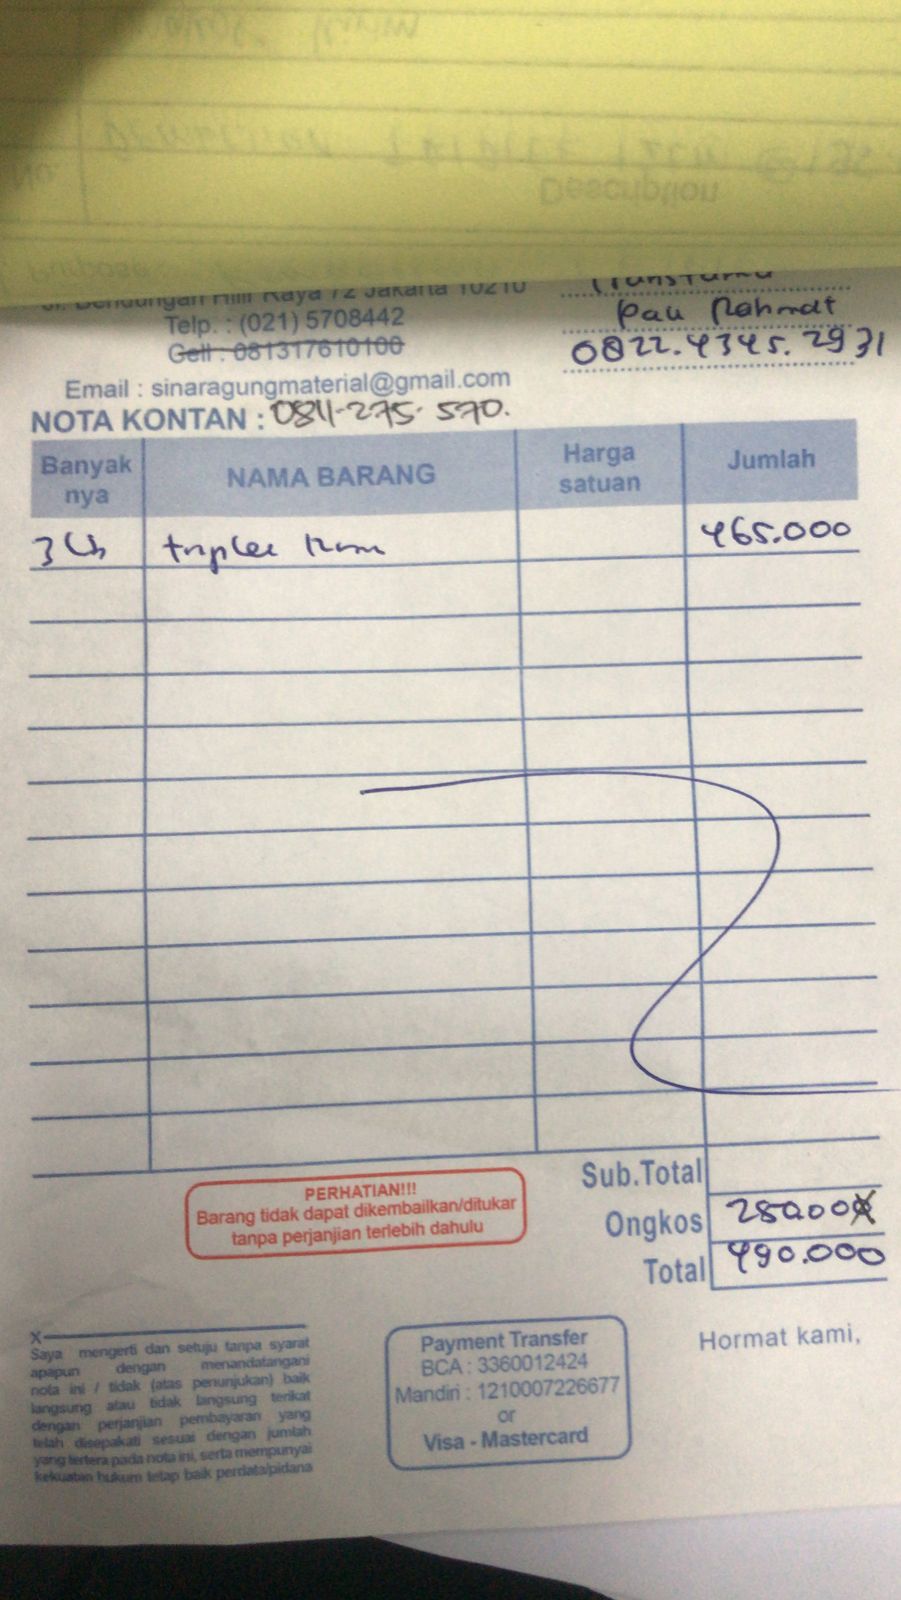 Jl. Bendungan Hilir Raya 72 Jakarta 10210
Telp. : (021) 5708442
Cell : 081317610100
Email : sinaragungmaterial@gmail.com
Pak Rahmat
0822.4345.2931
NOTA KONTAN : 0811-275-570.
Banyak nya NAMA BARANG Harga satuan Jumlah
3 triplek 465.000
PERHATIAN!!!
Barang tidak dapat dikembailkan/ditukar
tanpa perjanjian terlebih dahulu
Sub.Total
Ongkos
Total 490.000
X
Saya mengerti dan setuju tanpa syarat
apapun dengan menandatangani
nota ini / tidak (atas penunjukan) baik
langsung atau tidak langsung terikat
dengan perjanjian pembayaran yang
telah disepakati sesuai dengan jumlah
yang tertera pada nota ini, serta mempunyai
kekuatan hukum tetap baik perdata/pidana
Payment Transfer
BCA : 3360012424
Mandiri : 1210007226677
or
Visa - Mastercard
Hormat kami,